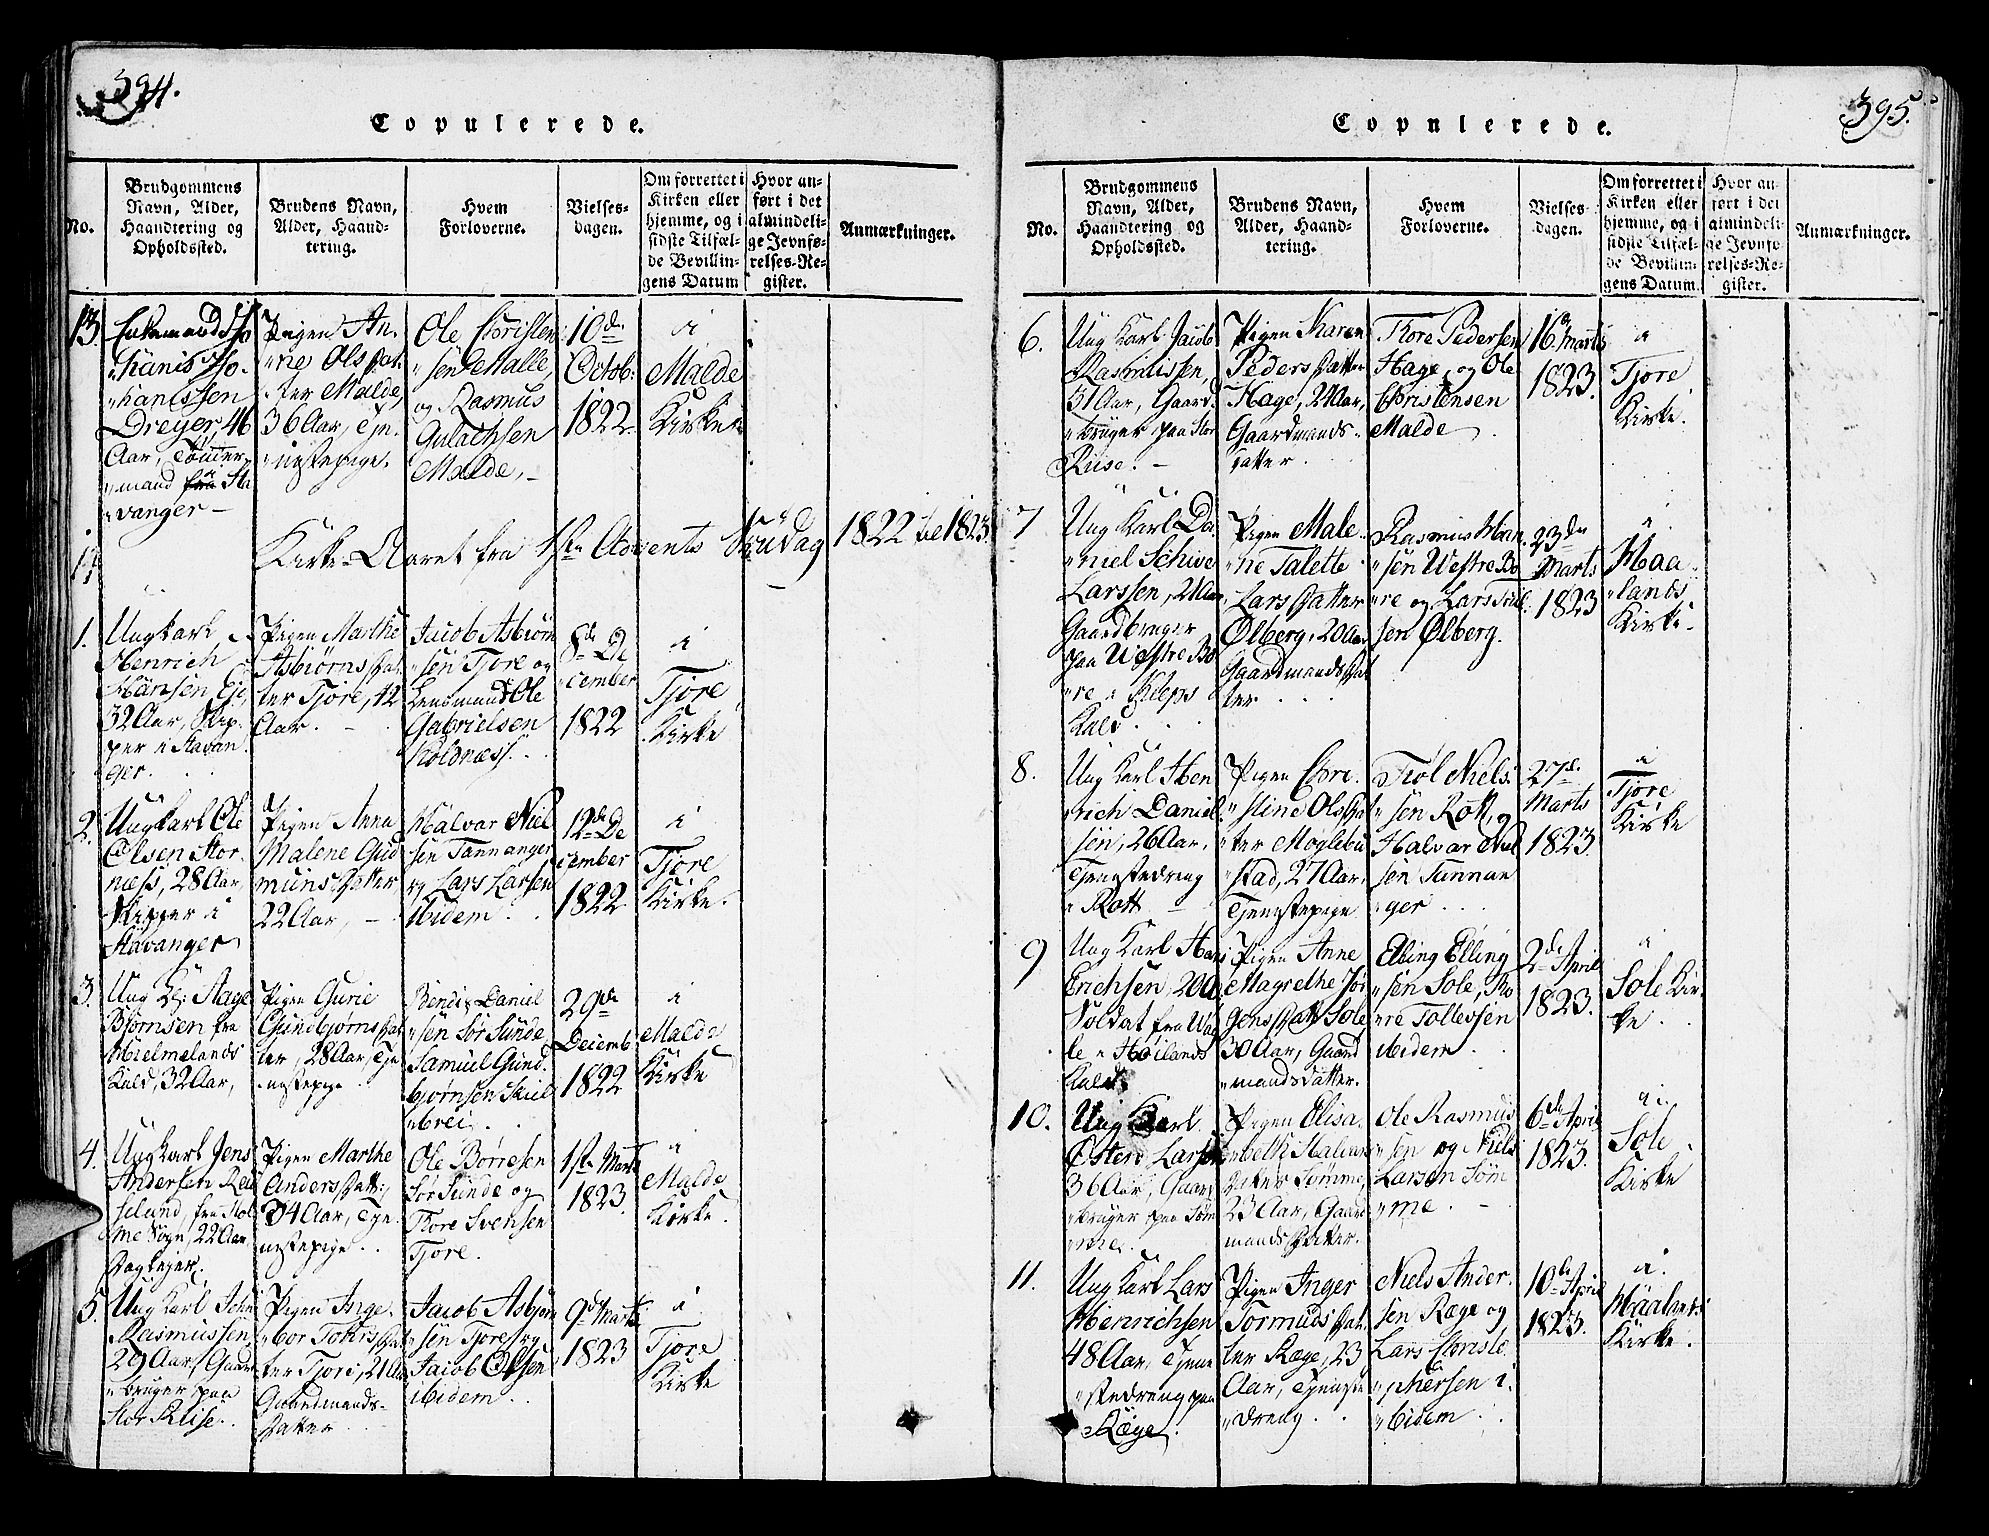 394.
Copulerede.
No.
Brudgommens
Navn, Alder,
Haandtering og
Opholdssted.
Brudens Navn,
Alder, Haand-
tering.
Hvem
Forloverne.
Vielses-
dagen.
Om forrettet i
Kirken eller
hjemme, og i
sidste Tilfæl-
de Bevillin-
gens Datum
Hvor an-
ført i det
almindeli-
ge Jevnfø-
relses-Re-
gister.
Anmærkninger.
13.
Enkemand Jo
"hanis Jo-
"hanissen
Dreyer, 46
Aar, Tømmer
"mand fra i Sta
"vanger
Pigen An-
"ne Ols Dat-
ter Malde,
36 Aar, Tje-
"nestepige.
Ole Christen
"sen Malle,
og Rasmus
Gulachsen
Malde,
10de
Octob:
1822
i
Malde
Kirke
Kirke-Aaret fra 1ste Advents Søndag 1822 til 1823
1.
Ungkarl
Henrich
Hansen Eje,
32 Aar, Skip-
per i Stavan
ger.
Pigen Marthe
Asbiørns Dat
ter Tjore, 42
Aar.
Jacob Asbiørn
"sen Tjore og
Lensmand Ole
Gabrielsen
Koldnæss.
8de De
"cember
1822
i
Tjore
Kirke
2.
Ungkarl Ole
Olsen Stor-
næss, 28 Aar,
Skipper i
Stavanger
Pigen Anna
Malene Gud
muns Datter
22 Aar,
Halvar Niel
sen Tannanger
og Lars Larsen
ibidem.
12de De
cember
1822
i
Tjore
Kirke.
3.
Ung K: Aage
Bjørnsen fra
Hielmelands
Kald, 32 Aar,
Pigen Gurie
Gundbjørns Dat
ter, 28 Aar, Tje
"nestepige
Bendix Daniel
"sen Sør Sunde
Samuel Gund.
bjørnsen Skiel
"brei.
29de
Decemb
1822
i
Malde
Kirke
4.
Ung Karl Jens
Andersen Rei
selund, fra Hol
me Sogn, 22 Aar,
Daglejer.
Pigen Marthe
Anders Datt:
34 Aar, Tje-
nestepige.
Ole Børresen
Sør Sunde og
Thore Svensen
Tjore.
1ste Marts
1823.
i
Malde
Kirke.
5.
Ung Karl John
Rasmussen
29 Aar, Gaard
"bruger paa
Stor Riise.
Pigen Inge-
"bor Tohrs Dat
ter Tjore, 21 Aar
Gaardmands-
Datter
Jacob Asbjørn
"sen Tjore og
Jacob Olsen
ibidem.
9de Marts
1823
i
Tjore
Kirke
395.
Copulerede.
No.
Brudgommens
Navn, Alder,
Haandtering og
Opholdssted.
Brudens Navn,
Alder, Haand-
tering.
Hvem
Forloverne.
Vielses-
dagen.
Om forrettet i
Kirken eller
hjemme, og i
sidste Tilfæl-
de Bevillin-
gens Datum.
Hvor an-
ført i det
almindeli-
ge Jevnfø-
relses-Re-
gister.
Anmærkninger.
6.
Ung Karl Jacob
Rasmussen,
31 Aar, Gaard-
"bruger paa Stor
Riise.
Pigen Karen
Peders Datter
Hage, 24 Aar,
Gaardmands-
Datter.
Thore Pedersen
Hage, og Ole
Christensen
Malde
16de Marts
1823.
i
Tjore
Kirke.
7
Ung Karl Da
"niel Schive
Larssen, 21 Aar
Gaardbruger
paa Westre Bo
"re i Kleps
Kald
Pigen Male-
"ne Talette
Lars Datter
Ølberg, 20 Aar
Gaardmands Dat
ter
Rasmus Han
"sen Westre Bo
re og Lars Niel
sen Ølberg.
23den
Marts
1823
i
Haa-
"lands
Kirke.
8.
Ung Karl Hen
"rich Daniel
sen, 26 Aar,
Tjenestedreng
i Rott
Pigen Chri-
"stine Ols Dat
"ter Møglebu
"stad, 27 Aar,
Tjenestepige
Tiøl Niels
"sen Rott, og
Halvar Niel
sen Tannan
"ger
27de
Marts
1823.
i
Tjore
Kirke
9
Ung Karl Hans
Erichsen, 20 A,
Soldat fra Wat
le i Høilands
Kald
Pigen Anne
Magrethe Jør
gens Datt Sole
30 Aar, Gaard
"mands Datter.
Elling Elling
"sen Sole, To
re Tollevsen
ibidem
2de April
1823.
i
Sole Kir-
ke.
10.
Ung Karl
Østen Larsen
36 Aar, Gaard
"bruger paa Søm
"me.
Pigen Elisa
"beth Halvar
Datter Sømme,
23 Aar, Gaard
mands Datter.
Ole Rasmus
"sen og Niels
Larsen Søm
"me.
6de April
1823.
i
Sole
Kirke
11.
Ung Karl Lars
Henrichsen
48 Aar, Tjene
"stedreng paa
Ræge.
Pigen Inger
Tormuds Dat-
ter Ræge, 23
Aar, Tjeneste
"dreng
Niels Ander-
sen Ræge og
Lars Christo
"phersen i-
"bidem
10de April
1823.
i
Haalands
Kirke.